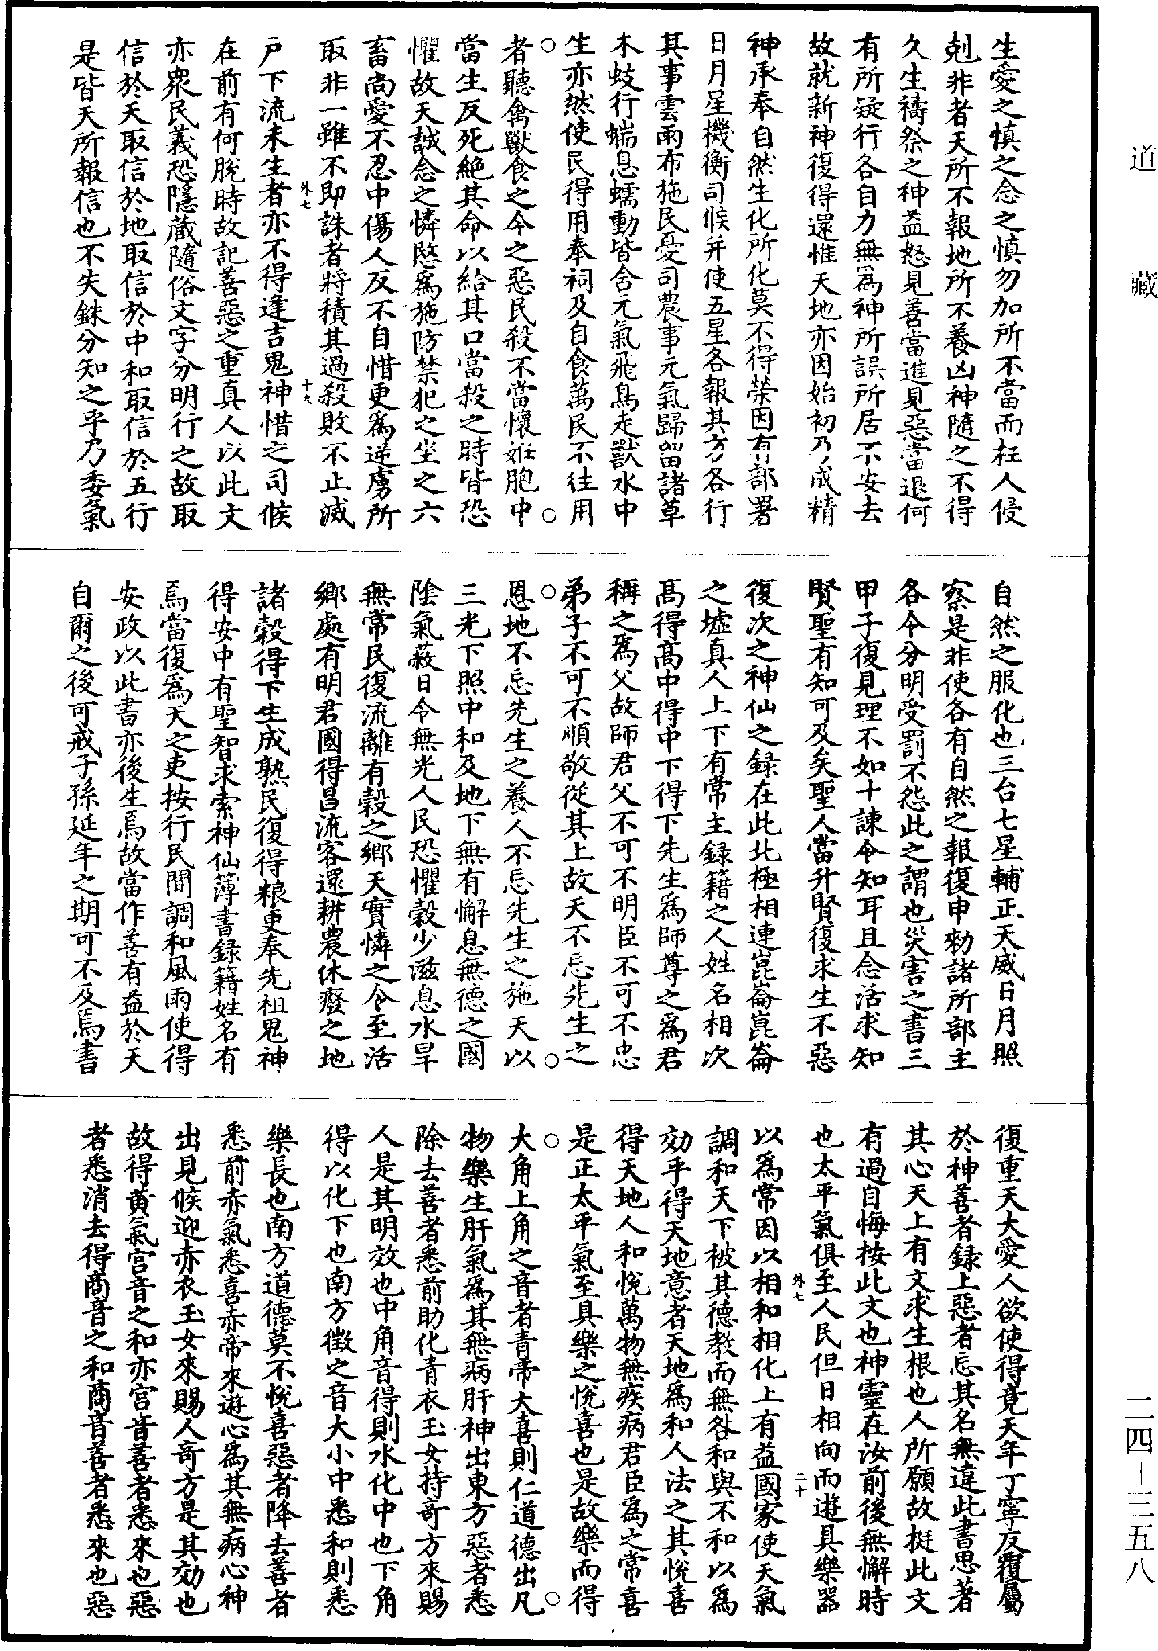 道藏
生愛之慎之念之慎勿加所不當而枉人侵
剋非者天所不報地所不養凶神隨之不得
久生禱祭之神益怒見善當進見惡當退何
有所疑行各自力無為神所誤所居不安去
故就新神復得還惟天地亦因始初乃成精
神承奉自然生化所化莫不得榮因有部署
日月星機衡司候并使五星各報其方各行
其事雲雨布施民憂司農事元氣歸留諸草
木蚑行蝡息蠕動皆含元氣飛鳥走獸水中
生亦然使民得用奉祠及自食萬民不往用
者聽禽獸食之今之惡民殺不當懷姙胞中
當生反死絕其命以給其口當殺之時皆恐
懼故天誡念之憐愍為施防禁犯之坐之六
畜尚愛不忍中傷人反不自惜更為逆虜所
取非一雖不即誅者將積其過殺敗不止滅
外七
十九
戶下流未生者亦不得逢吉鬼神惜之司候
在前有何脫時故記善惡之重真人以此文
亦衆民義恐隱藏隨俗文字分明行之故取
信於天取信於地取信於中和取信於五行
是皆天所報信也不失銖分知之乎乃委氣
自然之服化也三台七星輔正天威日月照
察是非使各有自然之報復申勅諸所部主
各令分明受罰不怨此之謂也災害之書三
甲子復見理不如十諫令知耳且念活求知
賢聖有知可及矣聖人當升賢復求生不惡
復次之神仙之録在此北極相連崑崙崑崙
之墟真人上下有常主録籍之人姓名相次
高得高中得中下得下先生為師尊之為君
稱之為父故師君父不可不明臣不可不忠
弟子不可不順敬從其上故天不忘先生之
恩地不忘先生之養人不忘先生之施天以
三光下照中和及地下無有懈息無德之國
陰氣蔽日令無光人民恐懼穀少滋息水旱
無常民復流離有穀之鄉天實憐之令至活
鄉處有明君國得昌流客還耕農休廢之地
諸穀得下生成熟民復得粮更奉先祖鬼神
得安中有聖智求索神仙簿書録籍姓名有
焉當復為天之吏按行民間調和風雨使得
安政以此書亦後生焉故當作善有益於天
自爾之後可戒子孫延年之期可不及焉書
復重天大愛人欲使得竟天年丁寧反覆屬
於神善者録上惡者忘其名無違此書思著
其心天上有文求生根也人所願故挺此文
有過自悔按此文也神靈在汝前後無懈時
也太平氣俱至人民但日相向而遊具樂器
以為常因以相和相化上有益國家使天氣
外七
二十
調和天下被其德教而無咎和與不和以為
効乎得天地意者天地為和人法之其悅喜
得天地人和悅萬物無疾病君臣為之常喜
是正太平氣至具樂之悅喜也是故樂而得
大角上角之音者青帝大喜則仁道德出凡
物樂生肝氣為其無病肝神出東方惡者悉
除去善者悉前助化青衣玉女持奇方來賜
人是其明效也中角音得則水化中也下角
得以化下也南方徵之音大小中悉和則悉
樂長也南方道德莫不悅喜惡者降去善者
悉前赤氣悉喜赤帝來遊心為其無病心神
出見候迎赤衣玉女來賜人奇方是其効也
故得黃氣宮音之和亦宮音善者悉來也惡
者悉消去得商音之和商音善者悉來也惡
二四-三五八